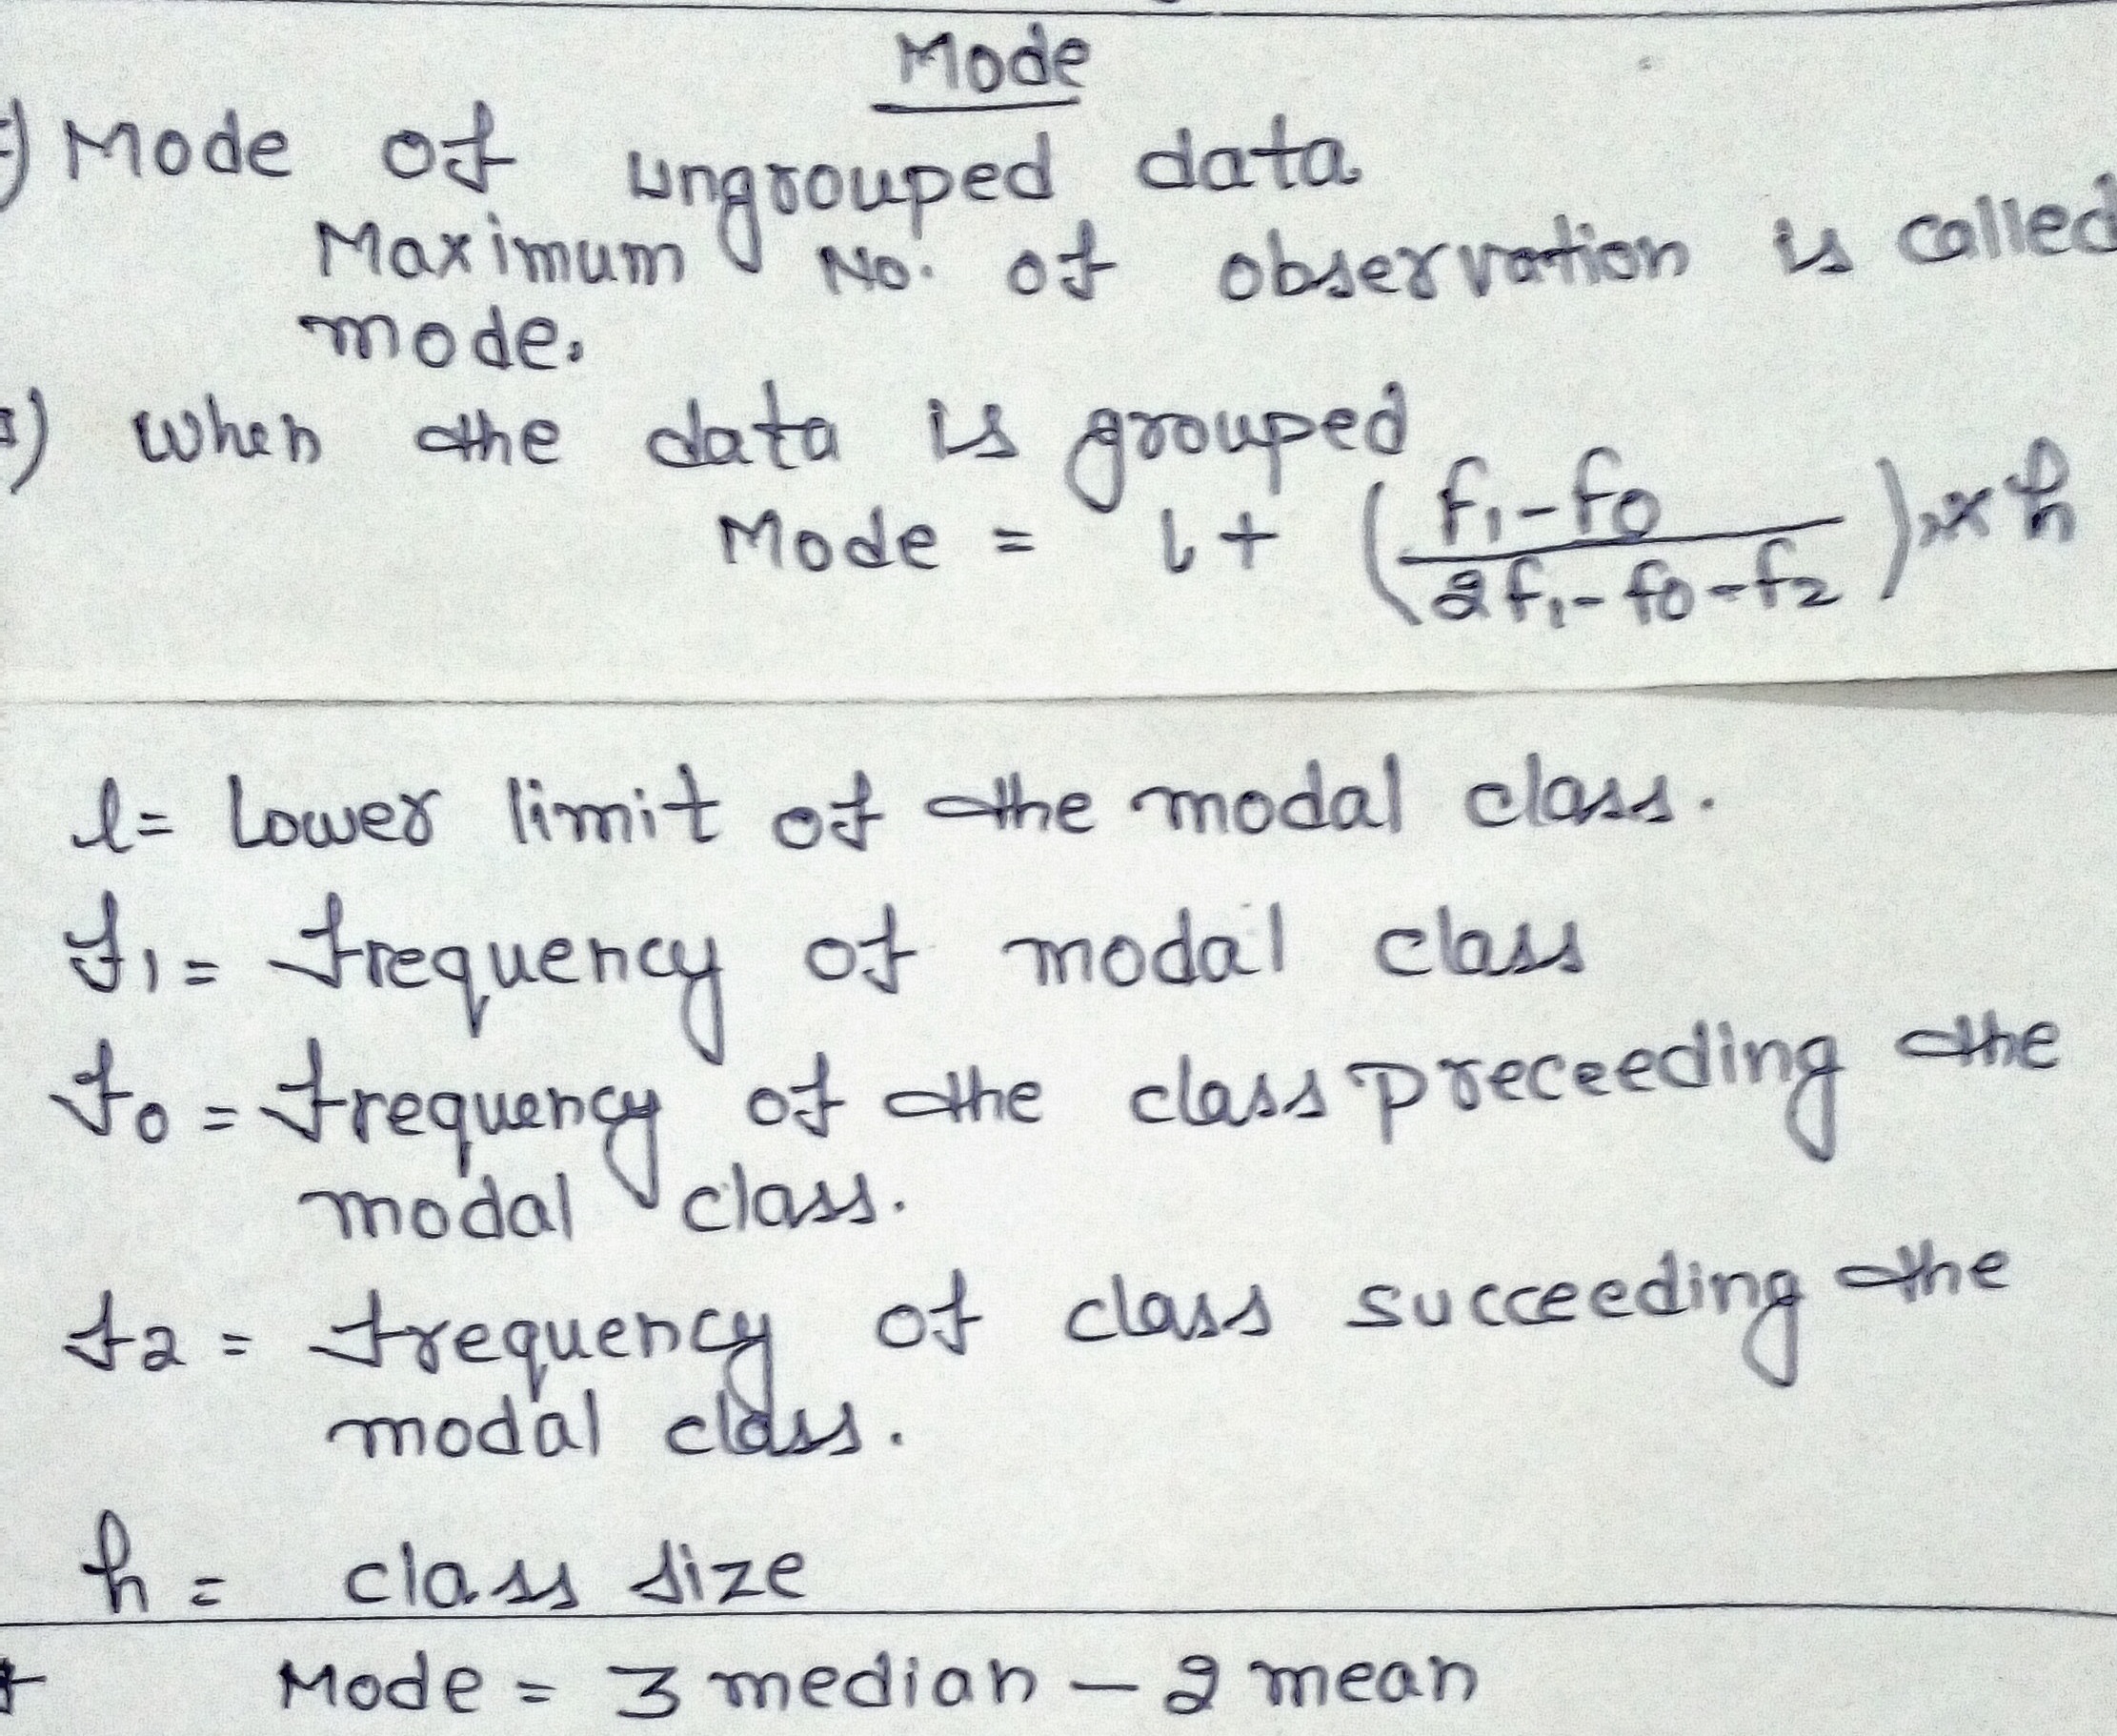 Mode
) Mode of ungrouped data
Maximum No. of observation is called
mode.
) when the data is grouped
Mode = l + (f₁-f₀ / 2f₁-f₀-f₂) × h
l = Lower limit of the modal class.
f₁ = frequency of modal class
f₀ = frequency of the class preceeding the
modal class.
f₂ = frequency of class succeeding the
modal class.
h = class size
Mode = 3 median - 2 mean